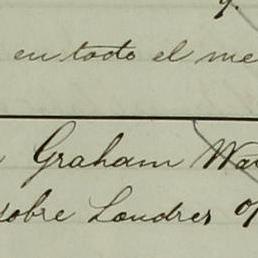 en todo el me
Graham Wa
sobre Londres